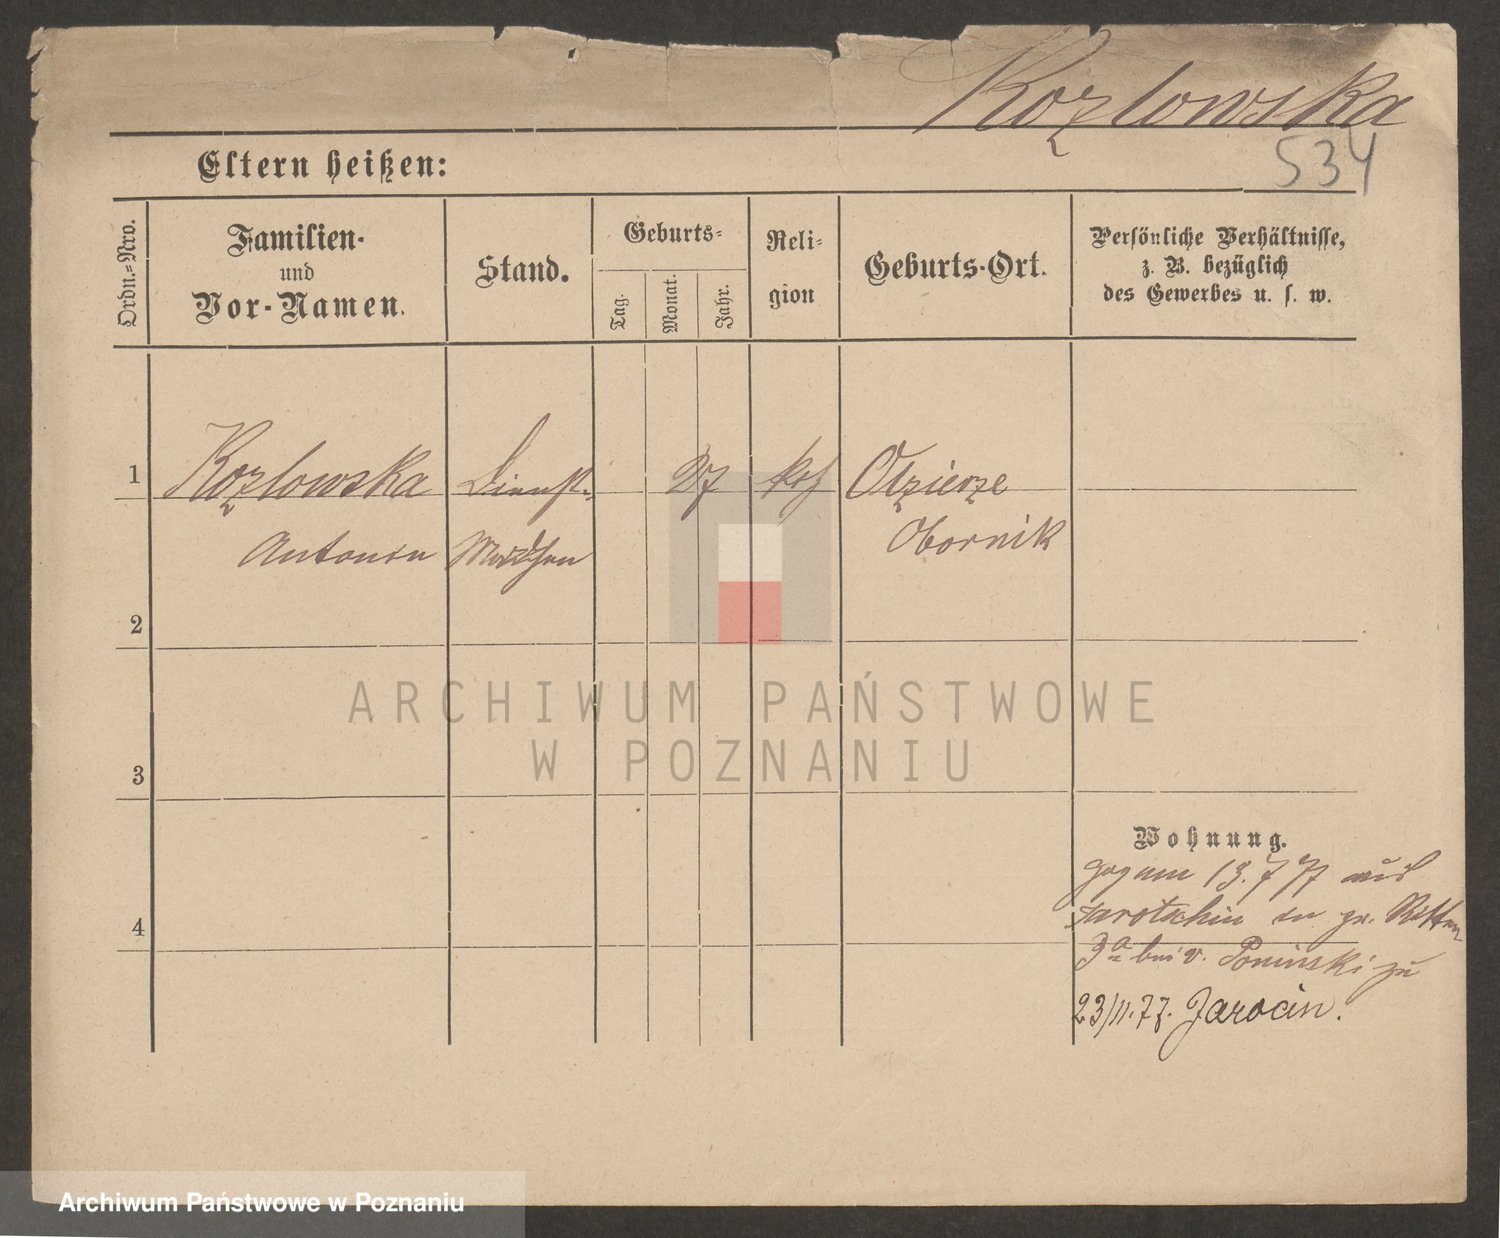 Kozlowska
534
Eltern heißen:
Ordn.=Nro.
Familien-
und
Vor-Namen.
Stand.
Geburts=
Tag.
Monat.
Jahr.
Reli=
gion
Geburts-Ort.
Persönliche Verhältnisse,
z. B. bezüglich
des Gewerbes u. s. w.
1 Kozlowska Dienst- 27 kth
Antonie Mädchen Obornik
2
3
4
Wohnung.
am 13.7 77 aus
Jarotschin in gr. Ritter
3a bei v. Poninski zu
23/11.77. Jarocin.
ARCHIWUM PAŃSTWOWE
W POZNANIU
Archiwum Państwowe w Poznaniu